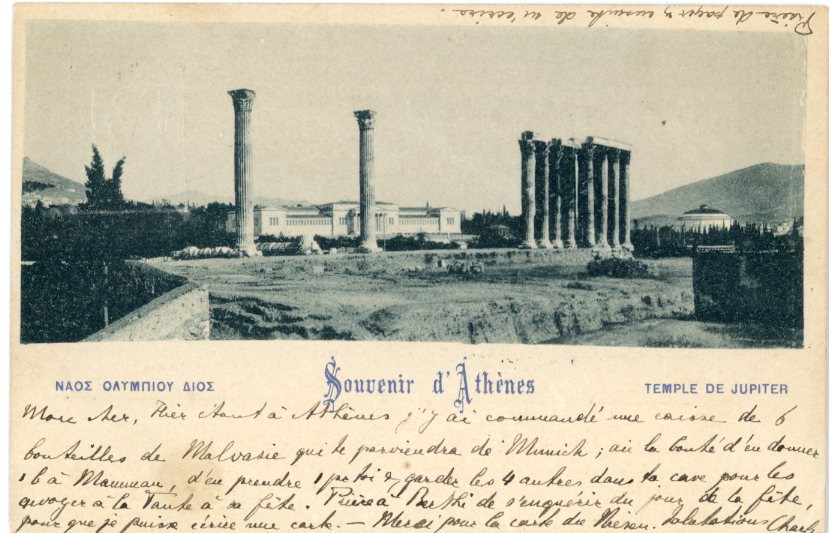 Prière de payer & ensuite de m'écrire.
ΝΑΟΣ ΟΛΥΜΠΙΟΥ ΔΙΟΣ
Souvenir d'Athènes
TEMPLE DE JUPITER
Mon cher, Hier étant à Athènes j'y ai commandé une caisse de 6
bouteilles de Malvasie qui te parviendra de Munich ; aie la bonté d'en donner
1 b à Maman, d'en prendre 1 pr toi & garder les 4 autres dans ta cave pour les
envoyer à la Tante à sa fête. Prière à de s'enquérir du jour de la fête,
pour que je puisse écrire une carte. — Merci pour la carte du Salutations